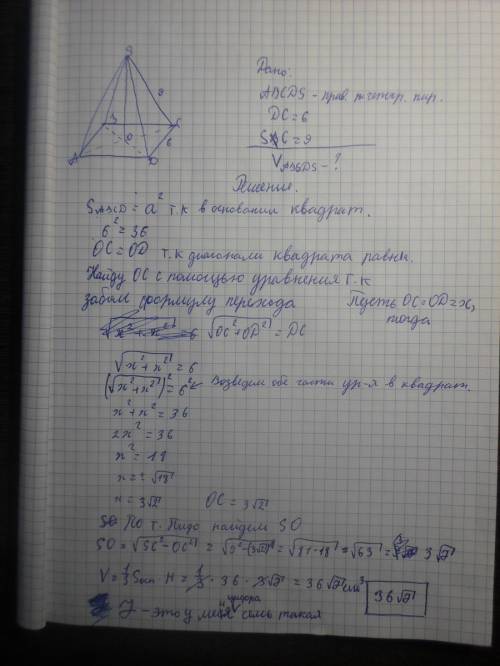 S
9
B
C
6
O
A
D
Дано:
ABCDS - прав. четыр. пир.
DC = 6
SC = 9
V ABCDS - ?
Решение.
S ABCD = a² т.к в основании квадрат.
6² = 36
OC = OD т.к диагонали квадрата равны.
Найду OC с помощью уравнения т.к
забыл формулу перехода Пусть OC = OD = x,
тогда
√x² + x² = 6 √OC² + OD² = DC
√x² + x² = 6
(√x² + x²)² = 6² ← Возведем обе части ур-я в квадрат.
x² + x² = 36
2x² = 36
x² = 18
x = ± √18
x = 3√2 OC = 3√2
SO По т. Пифо найдем SO
SO = √SC² - OC² = √9² - (3√2)² = √81 - 18 = √63 = 3√7
V = 1/3 Sосн · H = 1/3 · 36 · 3√7 = 36√7 см³ 36√7
7 - это у меня семь такая
цифра